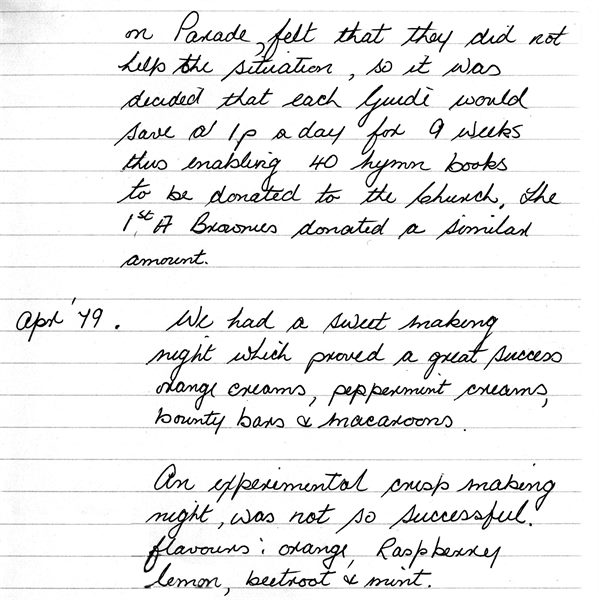 on Parade, felt that they did not
help the situation, so it was
decided that each Guide would
save a 1p a day for 9 weeks
thus enabling 40 hymn books
to be donated to the Church. The
1st A Brownies donated a similar
amount.
Apr '79. We had a sweet making
night which proved a great success
orange creams, peppermint creams,
bounty bars & macaroons.
An experimental crisp making
night, was not so successful.
flavours: orange, Raspberry
lemon, beetroot & mint.